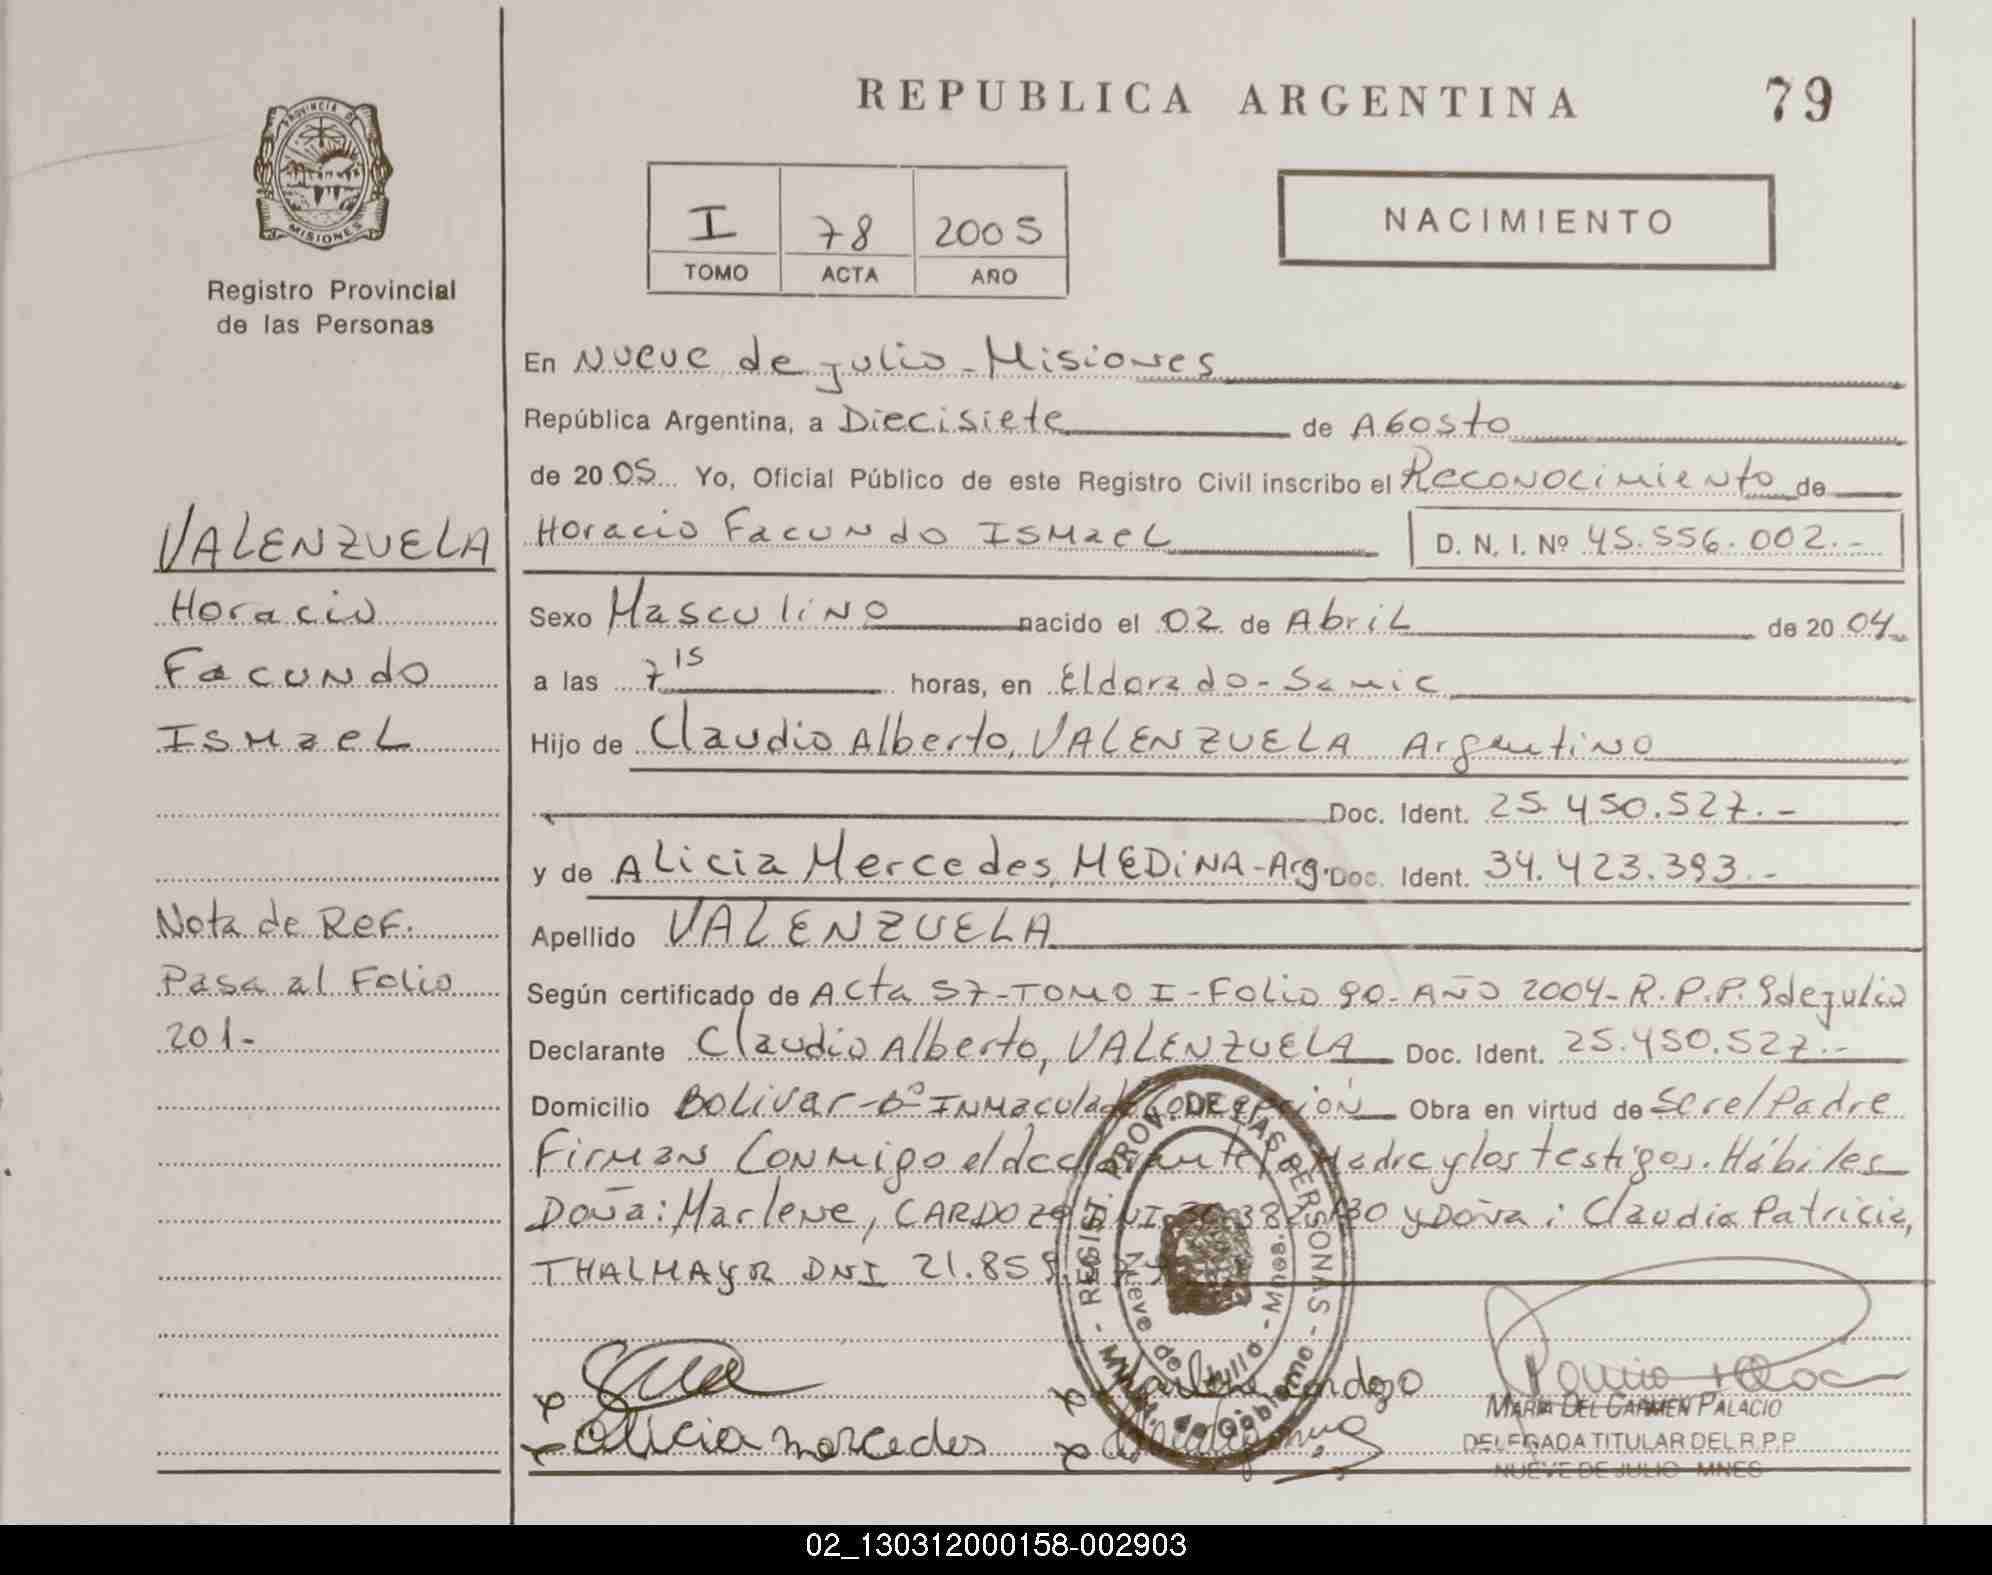 REPUBLICA ARGENTINA
79
PROVINCIA DE
MISIONES
Registro Provincial
de las Personas
I 78 2005
TOMO ACTA AÑO
NACIMIENTO
VALENZUELA
Horacio
Facundo
Ismael
Nota de Ref.
Pasa al Folio
201-
En Nueve de julio - Misiones
República Argentina, a Diecisiete de Agosto
de 20 05 Yo, Oficial Público de este Registro Civil inscribo el Reconocimiento de
Horacio Facundo Ismael D. N. I. Nº 45.556.002.-
Sexo Masculino nacido el 02 de Abril de 20 04
a las 7 15 horas, en Eldorado - Samic
Hijo de Claudio Alberto, VALENZUELA Argentino
Doc. Ident. 25.450.527.-
y de Alicia Mercedes, MEDINA - Arg. Doc. Ident. 34.423.393.-
Apellido VALENZUELA
Según certificado de Acta 57 - TOMO I - Folio 90 - AÑO 2004 - R.P.P. 9 de julio
Declarante Claudio Alberto, VALENZUELA Doc. Ident. 25.450.527.-
Domicilio Bolivar - Bº Inmaculada Concepción Obra en virtud de Ser el Padre
Firman Conmigo el declarante, la Madre y los testigos. Hábiles
Doña: Marlene, CARDOZO DNI 30.382. y Doña: Claudia Patricia,
THALMAYR DNI 21.859.
REGIST. PROV. DE LAS PERSONAS
Nueve de Julio - Mnes.
de Gobierno
Marlene Cardozo
Alicia mercedes
MARIA DEL CARMEN PALACIO
DELEGADA TITULAR DEL R.P.P.
NUEVE DE JULIO - MNES
02_130312000158-002903